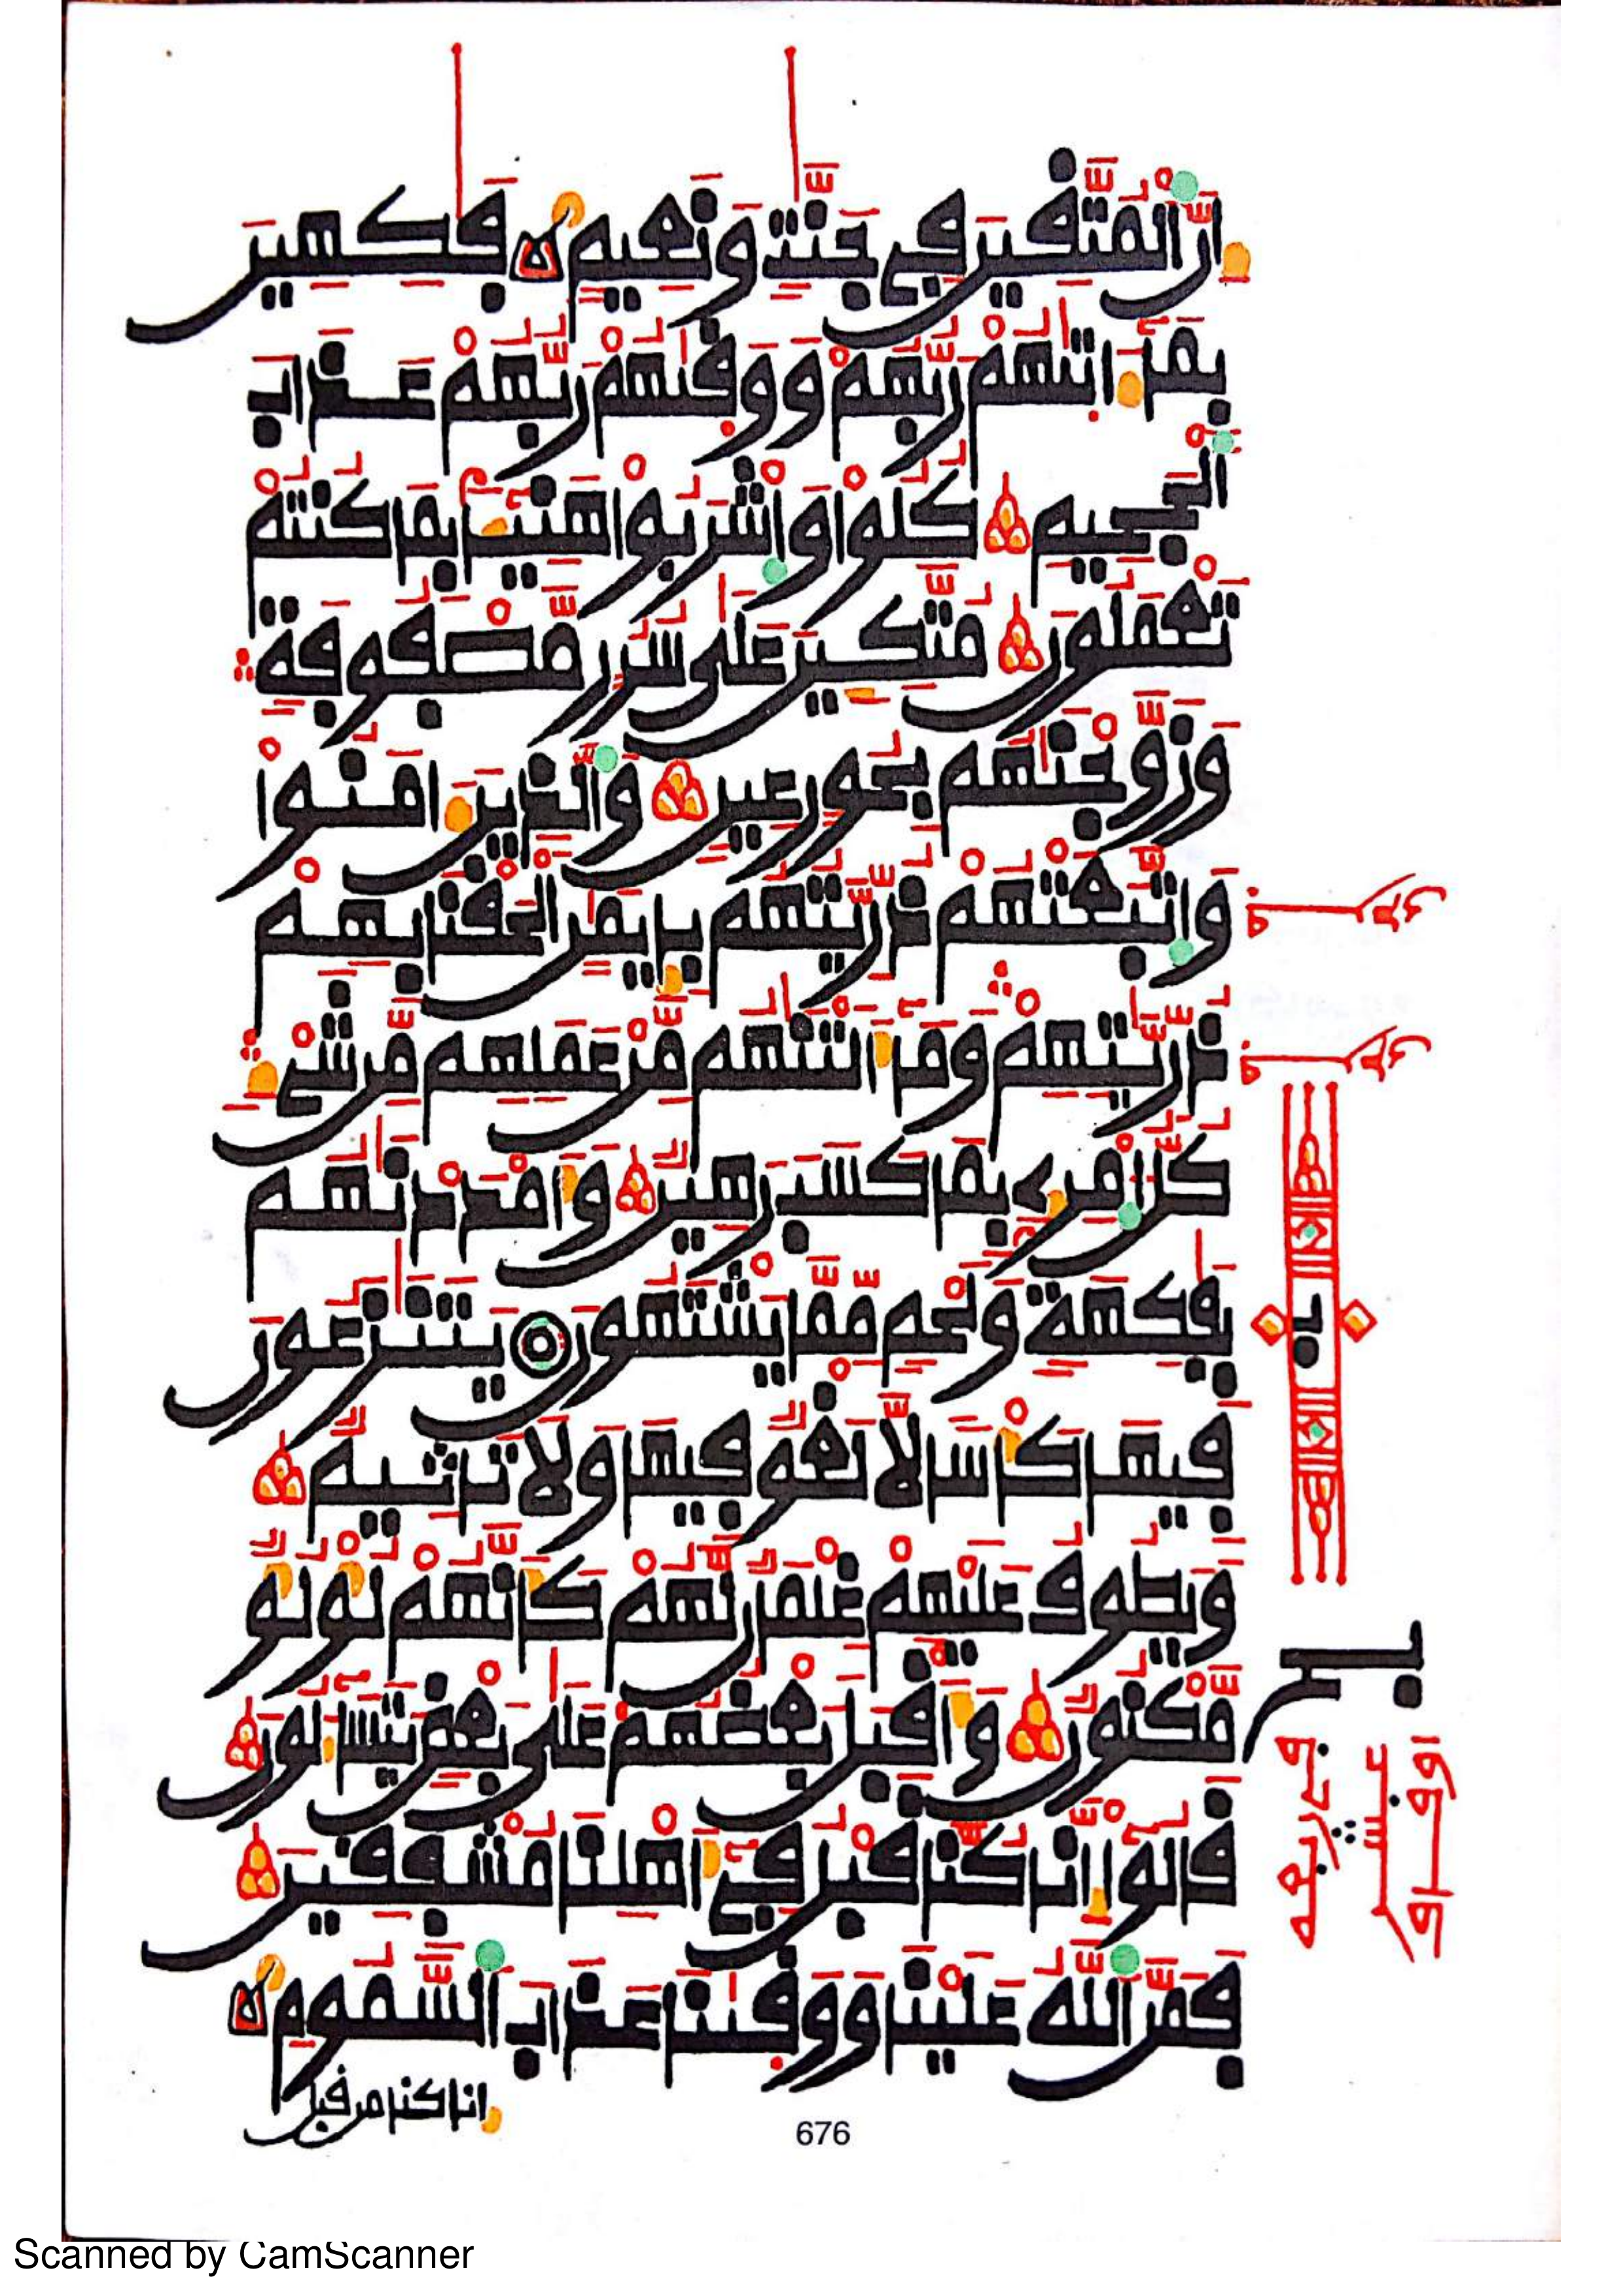 اِنَّ اَلْمُتَّقِينَ فِي جَنَّٰتٍ وَنَعِيمٍ فَٰكِهِينَ
بِمَآ ءَاتَيٰهُمْ رَبُّهُمْ وَوَقَيٰهُمْ رَبُّهُمْ عَذَابَ
اَلْجَحِيمِ كُلُواْ وَاشْرَبُواْ هَنِيٓـٔاً بِمَا كُنتُمْ
تَعْمَلُونَ مُتَّكِـِٕينَ عَلَىٰ سُرُرٍ مَّصْفُوفَةٍ
وَزَوَّجْنَٰهُم بِحُورٍ عِينٍ وَالذِينَ ءَامَنُواْ
وَاتَّبَعَتْهُمْ ذُرِّيَّتُهُم بِإِيمَٰنٍ اَلْحَقْنَا بِهِمْ
ذُرِّيَّٰتِهِمْ وَمَآ أَلَتْنَٰهُم مِّنْ عَمَلِهِم مِّن شَيْءٍ
كُلُّ اُمْرِيٕۢ بِمَا كَسَبَ رَهِينٌ وَأَمْدَدْنَٰهُم
بِفَٰكِهَةٍ وَلَحْمٍ مِّمَّا يَشْتَهُونَ يَتَنَٰزَعُونَ
فِيهَا كَأْساً لَّا لَغْوٌ فِيهَا وَلَا تَاثِيمٌ
وَيَطُوفُ عَلَيْهِمْ غِلْمَانٌ لَّهُمْ كَأَنَّهُمْ لُؤْلُؤٌ
مَّكْنُونٌ وَأَقْبَلَ بَعْضُهُمْ عَلَىٰ بَعْضٍ يَتَسَآءَلُونَ
قَالُوٓاْ إِنَّا كُنَّا قَبْلُ فِيٓ أَهْلِنَا مُشْفِقِينَ
فَمَنَّ اَللَّهُ عَلَيْنَا وَوَقَيٰنَا عَذَابَ اَلسَّمُومِ
انا كنا من قبل
676
Scanned by CamScanner